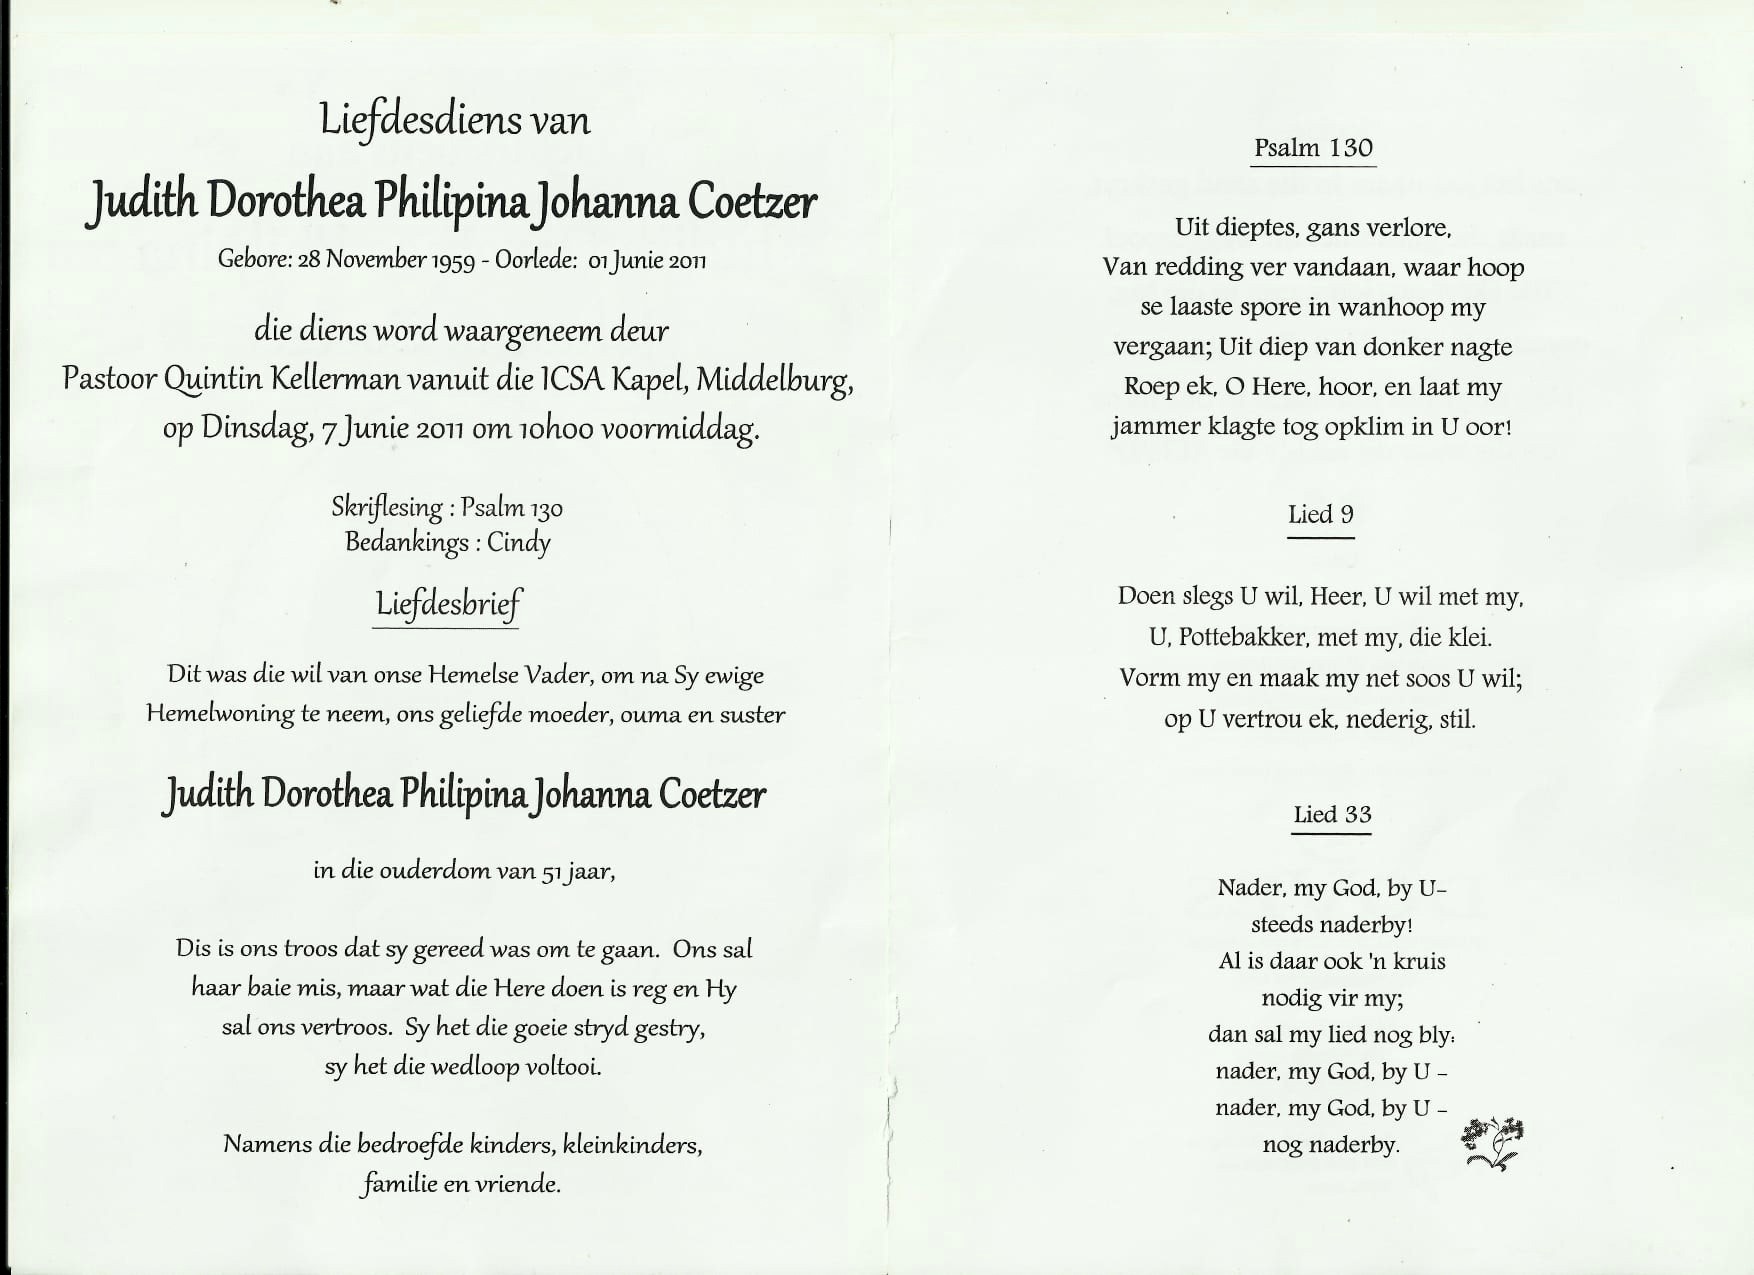 Liefdesdiens van
Judith Dorothea Philipina Johanna Coetzer
Gebore: 28 November 1959 - Oorlede: 01 Junie 2011
die diens word waargeneem deur
Pastoor Quintin Kellerman vanuit die ICSA Kapel, Middelburg,
op Dinsdag, 7 Junie 2011 om 10h00 voormiddag.
Skriflesing : Psalm 130
Bedankings : Cindy
Liefdesbrief
Dit was die wil van onse Hemelse Vader, om na Sy ewige
Hemelwoning te neem, ons geliefde moeder, ouma en suster
Judith Dorothea Philipina Johanna Coetzer
in die ouderdom van 51 jaar,
Dis is ons troos dat sy gereed was om te gaan. Ons sal
haar baie mis, maar wat die Here doen is reg en Hy
sal ons vertroos. Sy het die goeie stryd gestry,
sy het die wedloop voltooi.
Namens die bedroefde kinders, kleinkinders,
familie en vriende.
Psalm 130
Uit dieptes, gans verlore,
Van redding ver vandaan, waar hoop
se laaste spore in wanhoop my
vergaan; Uit diep van donker nagte
Roep ek, O Here, hoor, en laat my
jammer klagte tog opklim in U oor!
Lied 9
Doen slegs U wil, Heer, U wil met my,
U, Pottebakker, met my, die klei.
Vorm my en maak my net soos U wil;
op U vertrou ek, nederig, stil.
Lied 33
Nader, my God, by U–
steeds naderby!
Al is daar ook 'n kruis
nodig vir my;
dan sal my lied nog bly:
nader, my God, by U –
nader, my God, by U –
nog naderby.